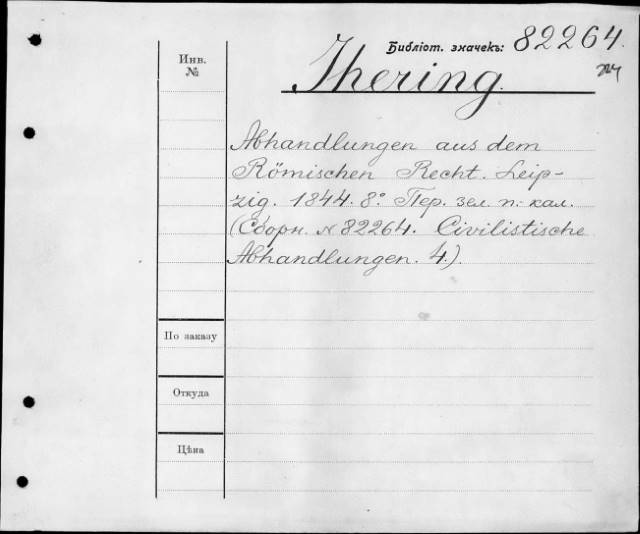 Библіот. значекъ: 82264.
Инв.
№
Jhering.
Abhandlungen aus dem
Römischen Recht. Leip-
zig. 1844. 8º. Пер. зел. п.-кал.
(Сборн. № 82264. Civilistische
Abhandlungen. 4.).
По заказу
Откуда
Цѣна